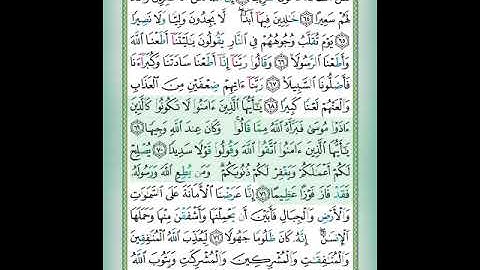 لَهُمْ سَعِيرًا ٦٤ خَٰلِدِينَ فِيهَآ أَبَدًا ۖ لَّا يَجِدُونَ وَلِيًّا وَلَا نَصِيرًا
٦٥ يَوْمَ تُقَلَّبُ وُجُوهُهُمْ فِي ٱلنَّارِ يَقُولُونَ يَٰلَيْتَنَآ أَطَعْنَا ٱللَّهَ
وَأَطَعْنَا ٱلرَّسُولَا۠ ٦٦ وَقَالُوا۟ رَبَّنَآ إِنَّآ أَطَعْنَا سَادَتَنَا وَكُبَرَآءَنَا
فَأَضَلُّونَا ٱلسَّبِيلَا۠ ٦٧ رَبَّنَآ ءَاتِهِمْ ضِعْفَيْنِ مِنَ ٱلْعَذَابِ
وَٱلْعَنْهُمْ لَعْنًا كَبِيرًا ٦٨ يَٰٓأَيُّهَا ٱلَّذِينَ ءَامَنُوا۟ لَا تَكُونُوا۟ كَٱلَّذِينَ
ءَاذَوْا۟ مُوسَىٰ فَبَرَّأَهُ ٱللَّهُ مِمَّا قَالُوا۟ ۚ وَكَانَ عِندَ ٱللَّهِ وَجِيهًا ٦٩
يَٰٓأَيُّهَا ٱلَّذِينَ ءَامَنُوا۟ ٱتَّقُوا۟ ٱللَّهَ وَقُولُوا۟ قَوْلًا سَدِيدًا ٧٠ يُصْلِحْ
لَكُمْ أَعْمَٰلَكُمْ وَيَغْفِرْ لَكُمْ ذُنُوبَكُمْ ۗ وَمَن يُطِعِ ٱللَّهَ وَرَسُولَهُۥ
فَقَدْ فَازَ فَوْزًا عَظِيمًا ٧١ إِنَّا عَرَضْنَا ٱلْأَمَانَةَ عَلَى ٱلسَّمَٰوَٰتِ
وَٱلْأَرْضِ وَٱلْجِبَالِ فَأَبَيْنَ أَن يَحْمِلْنَهَا وَأَشْفَقْنَ مِنْهَا وَحَمَلَهَا
ٱلْإِنسَٰنُ ۖ إِنَّهُۥ كَانَ ظَلُومًا جَهُولًا ٧٢ لِّيُعَذِّبَ ٱللَّهُ ٱلْمُنَٰفِقِينَ
وَٱلْمُنَٰفِقَٰتِ وَٱلْمُشْرِكِينَ وَٱلْمُشْرِكَٰتِ وَيَتُوبَ ٱللَّهُ